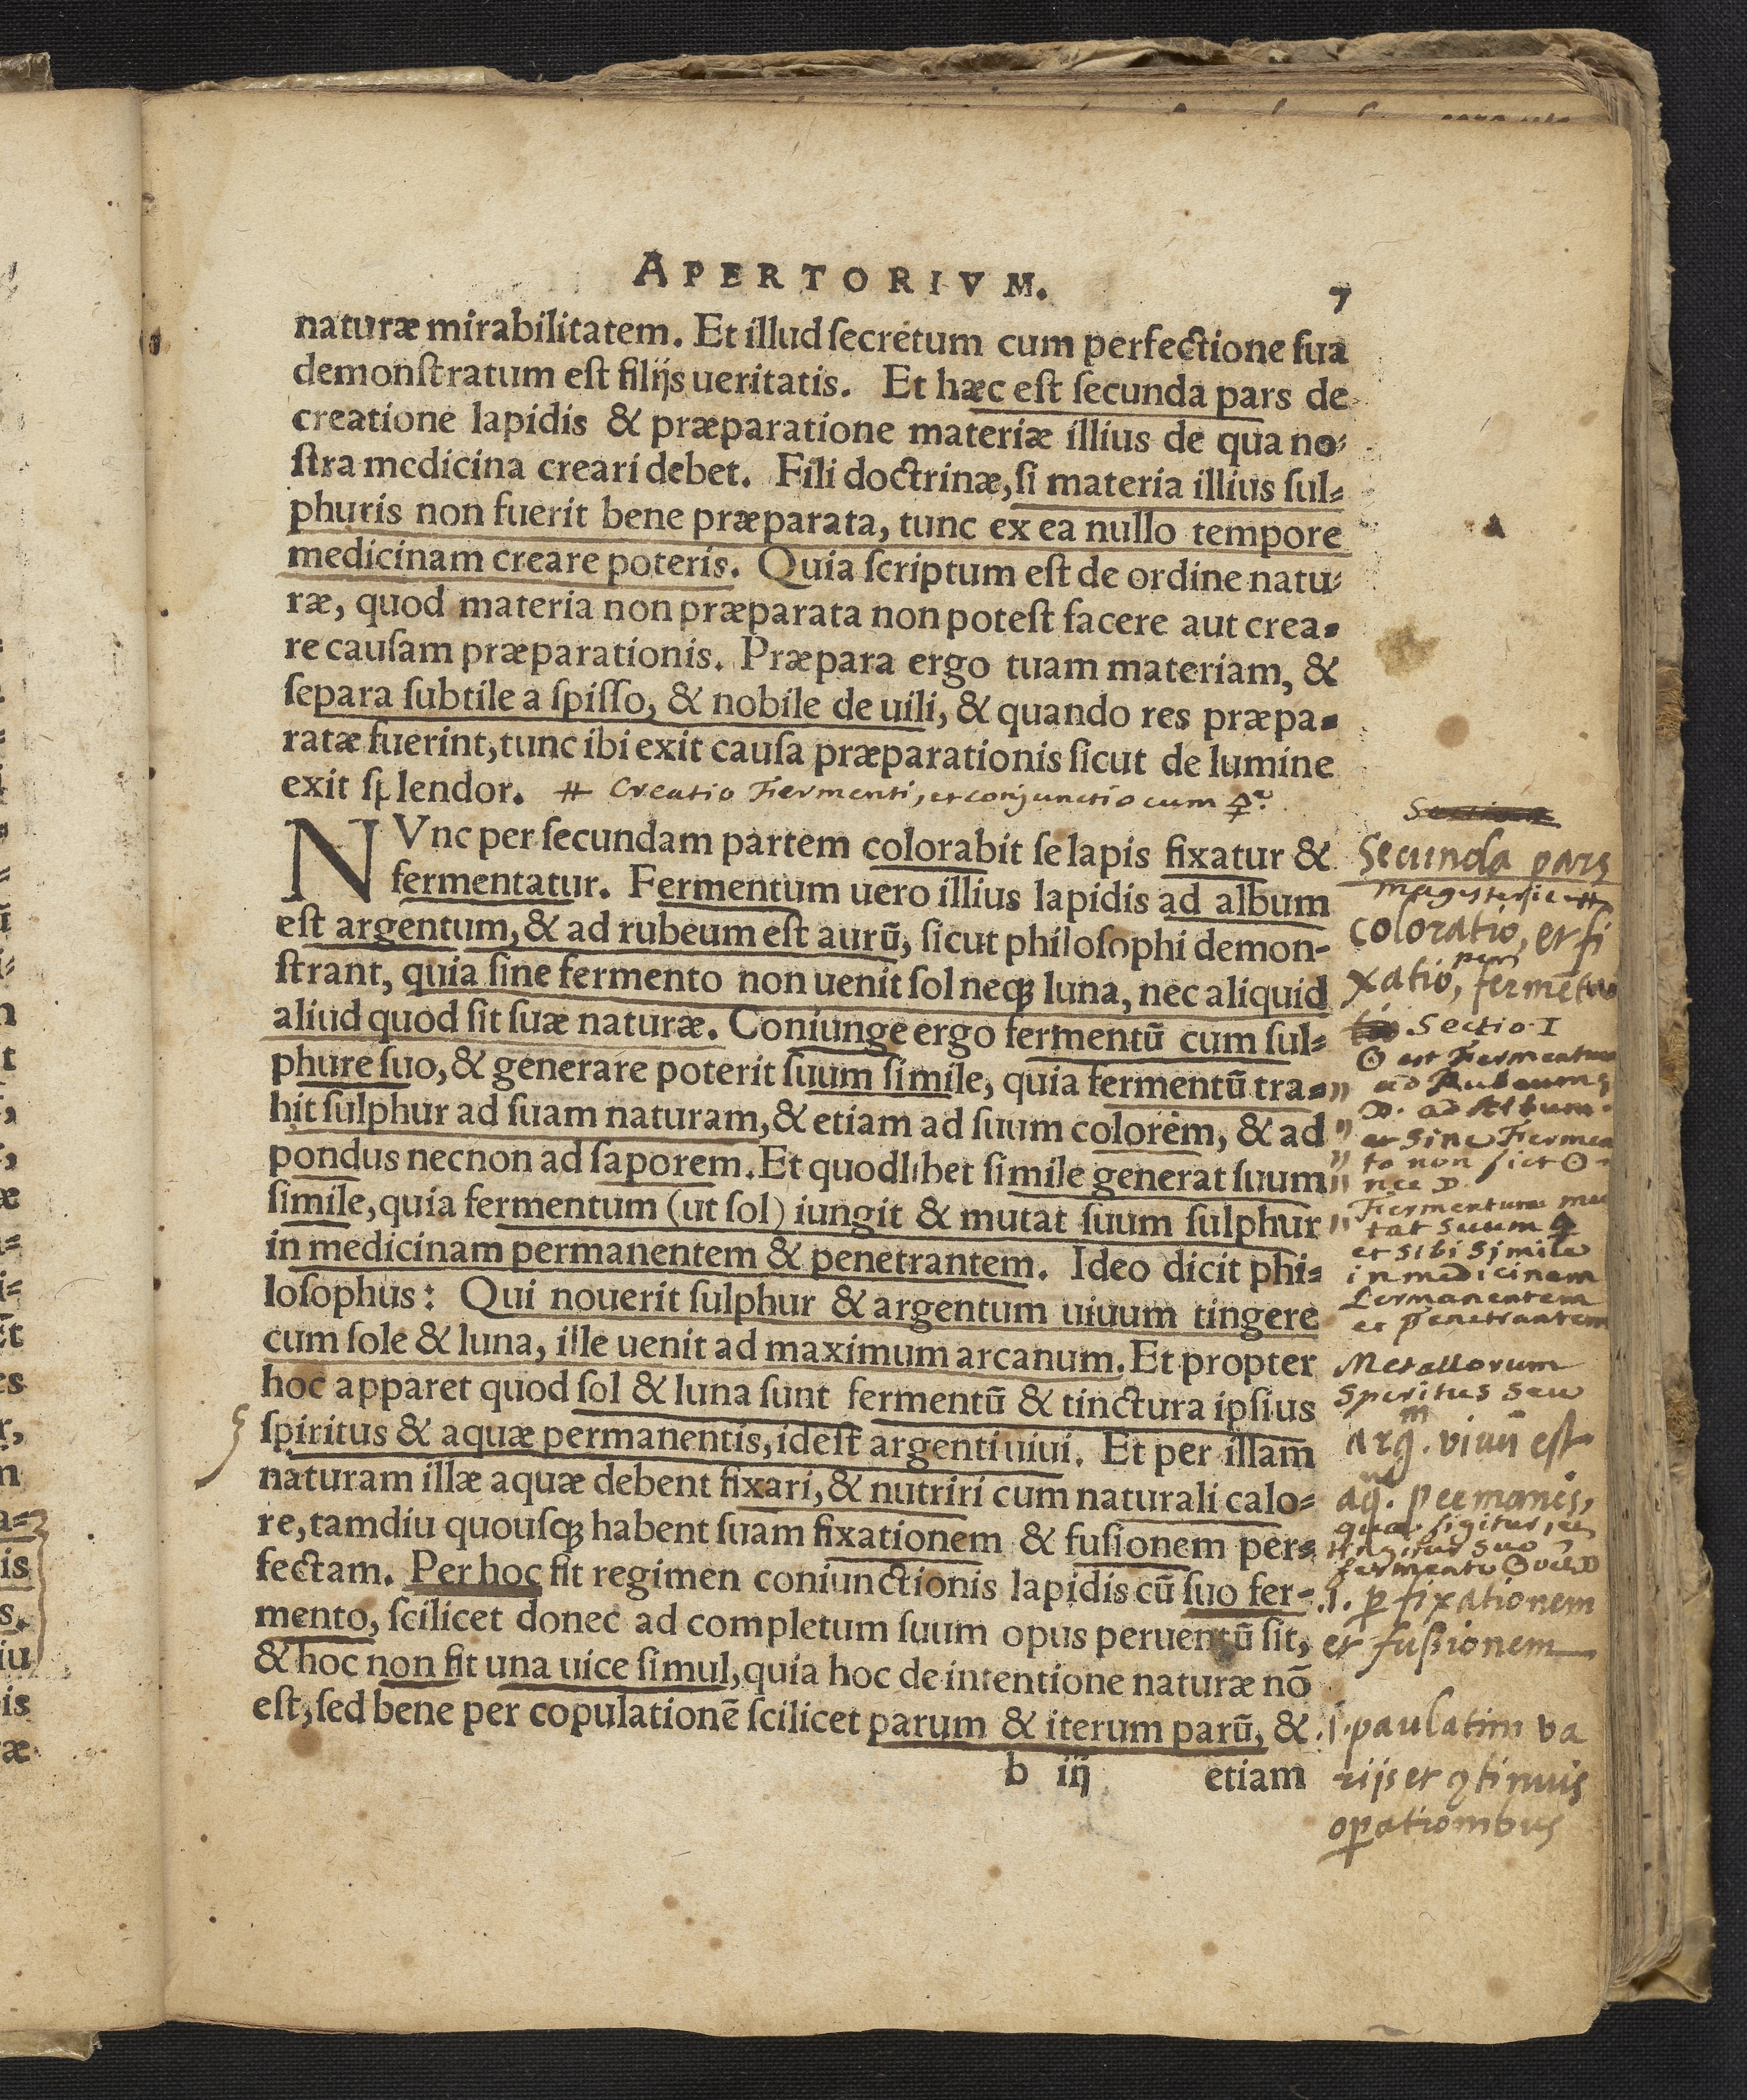 APERTORIVM. 7
naturæ mirabilitatem. Et illud ſecretum cum perfectione ſua
demonſtratum eſt filijs ueritatis. Et hæc eſt ſecunda pars de
creatione lapidis & præparatione materiæ illius de qua no-
ſtra medicina creari debet. Fili doctrinæ, ſi materia illius ſul-
phuris non fuerit bene præparata, tunc ex ea nullo tempore
medicinam creare poteris. Quia ſcriptum eſt de ordine natu-
ræ, quod materia non præparata non poteſt facere aut crea-
re cauſam præparationis. Præpara ergo tuam materiam, &
ſepara ſubtile a ſpiſſo, & nobile de uili, & quando res præpa-
ratæ fuerint, tunc ibi exit cauſa præparationis ſicut de lumine
exit ſplendor. # Creatio Fiermenti, et conjunctio cum
NVnc per ſecundam partem colorabit ſe lapis fixatur &
fermentatur. Fermentum uero illius lapidis ad album
eſt argentum, & ad rubeum eſt aurū, ſicut philoſophi demon-
ſtrant, quia ſine fermento non uenit ſol neqꝫ luna, nec aliquid
aliud quod ſit ſuæ naturæ. Coniunge ergo fermentū cum ſul-
phure ſuo, & generare poterit ſuum ſimile, quia fermentū tra-
hit ſulphur ad ſuam naturam, & etiam ad ſuum colorem, & ad
pondus necnon ad ſaporem. Et quodlibet ſimile generat ſuum
ſimile, quia fermentum (ut ſol) iungit & mutat ſuum ſulphur
in medicinam permanentem & penetrantem. Ideo dicit phi-
loſophus: Qui nouerit ſulphur & argentum uiuum tingere
cum ſole & luna, ille uenit ad maximum arcanum. Et propter
hoc apparet quod ſol & luna ſunt fermentū & tinctura ipſius
ſpiritus & aquæ permanentis, ideſt argenti uiui. Et per illam
naturam illæ aquæ debent fixari, & nutriri cum naturali calo-
re, tamdiu quouſqꝫ habent ſuam fixationem & fuſionem per-
fectam. Per hoc fit regimen coniunctionis lapidis cū ſuo fer-
mento, ſcilicet donec ad completum ſuum opus peruentū ſit,
& hoc non fit una uice ſimul, quia hoc de intentione naturæ nō
eſt, ſed bene per copulationē ſcilicet parum & iterum parū, &
b iij etiam
Secunda pars
coloratio, et fi
xatio,
Sectio. I
☉ est Fiermentum
ad Rubeum
☽. ad Album.
et sine Fiermen
to non fiet ☉
nec ☽.
Fiermentum mu
tat suum 🜍
et sibi simile
in medicinam
permanentem
et penetrantem
Metallorum
Spiritus seu
arg. viuū est
aq. permanēs,
fermento ☉ vel ☽
.i. ꝑ fixationem
et fußionem
.i. paulatim va
rijs et ꝯtinuis
oꝑationibus